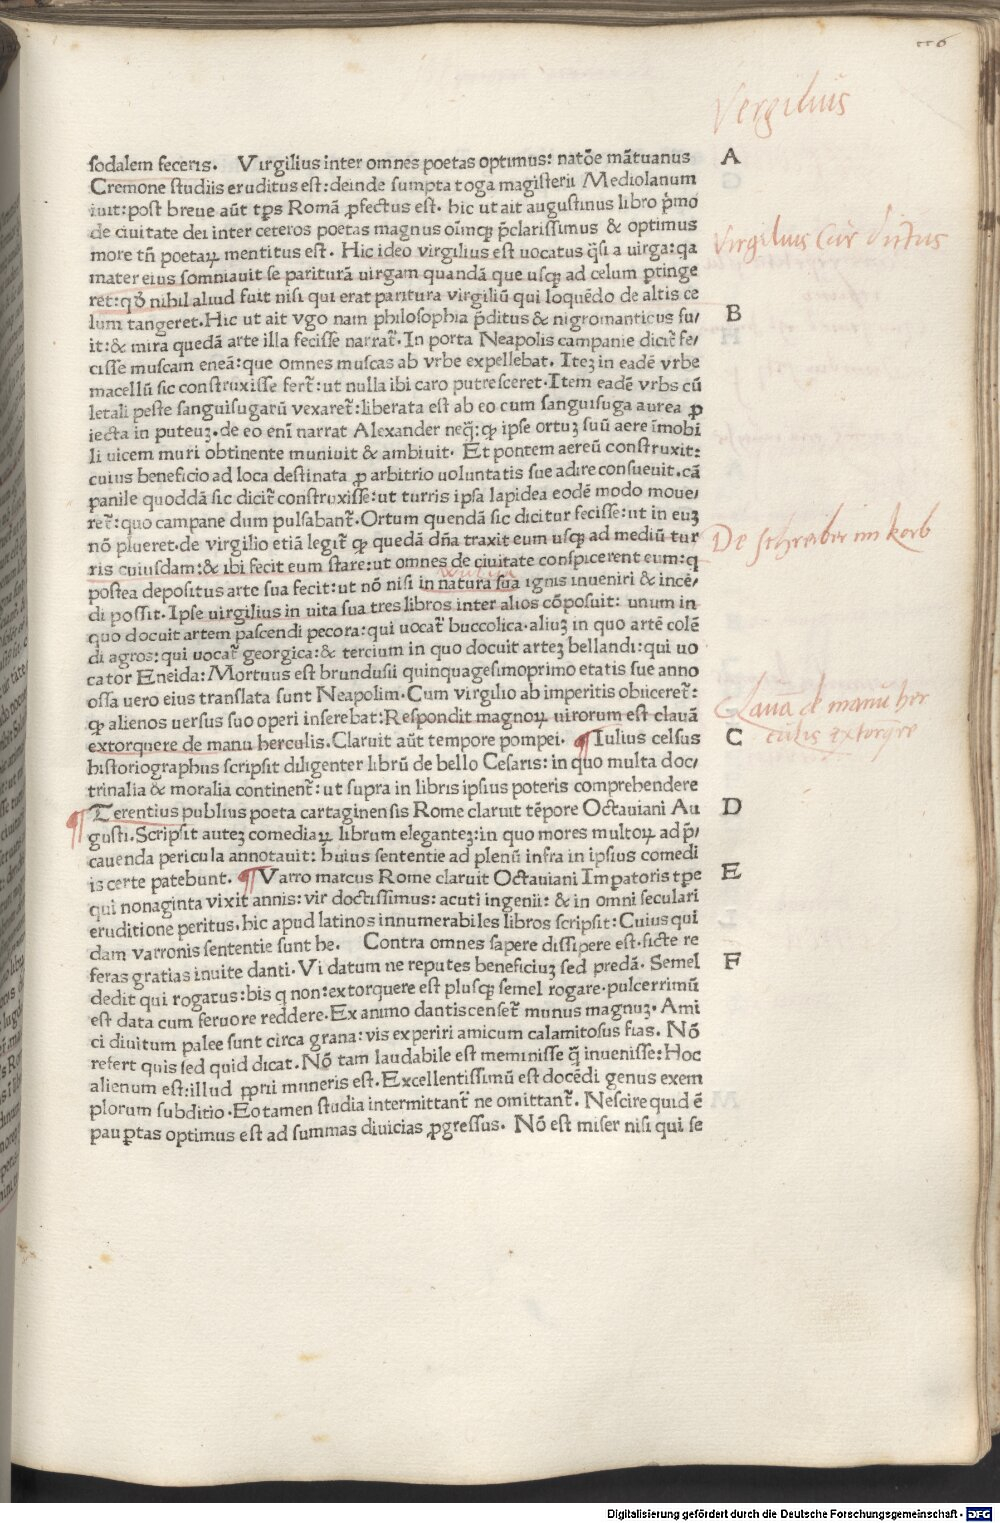 116
Vergilius
sodalem feceris. Virgilius inter omnes poetas optimus: natõe mãtuanus A
Cremone studiis eruditus est: deinde sumpta toga magisterii Mediolanum
iuit: post breue aũt tp̃s Romã ꝓfectus est. hic ut ait augustinus libro p̃mo
de ciuitate dei inter ceteros poetas magnus oĩmqꝫ p̃clarissimus & optimus
more tñ poetaꝝ mentitus est. Hic ideo virgilius est uocatus q̃si a uirga: qa
Virgilius Cur dictus
mater eius somniauit se pariturã uirgam quandã que usqꝫ ad celum ꝑtinge
ret: qđ nihil aliud fuit nisi qui erat paritura virgiliũ qui loquẽdo de altis ce
lum tangeret. Hic ut ait vgo nam philosophia p̃ditus & nigromanticus fu/ B
it: & mira quedã arte illa fecisse narrat᷑. In porta Neapolis campanie dicit᷑ fe/
cisse muscam eneã: que omnes muscas ab vrbe expellebat. Iteꝫ in eadẽ vrbe
macellũ sic construxisse fert᷑: ut nulla ibi caro putresceret. Item eadẽ vrbs cũ
letali peste sanguisugarũ vexaret᷑: liberata est ab eo cum sanguisuga aurea ꝓ
iecta in puteuꝫ. de eo enĩ narrat Alexander neq̃: qꝫ ipse ortuꝫ suũ aere ĩmobi
li uicem muri obtinente muniuit & ambiuit. Et pontem aereũ construxit:
cuius beneficio ad loca destinata ꝓ arbitrio uoluntatis sue adire consueuit. cã
panile quoddã sic dicit᷑ construxisse: ut turris ipsa lapidea eodẽ modo moue/
ret᷑: quo campane dum pulsabant᷑. Ortum quendã sic dicitur fecisse: ut in euꝫ
nõ plueret. de virgilio etiã legit᷑ qꝫ quedã dña traxit eum usqꝫ ad mediũ tur
De schreiber im korb
ris cuiusdam: & ibi fecit eum stare: ut omnes de ciuitate conspicerent eum: q
postea depositus arte sua fecit: ut nõ nisi in natura sua ignis inueniri & incẽ/
di possit. Ipse uirgilius in uita sua tres libros inter alios cõposuit: unum in
quo docuit artem pascendi pecora: qui uocat᷑ buccolica. aliuꝫ in quo artẽ colẽ
di agros: qui uocat᷑ georgica: & tercium in quo docuit arteꝫ bellandi: qui uo
cator Eneida: Mortuus est brundusii quinquagesimoprimo etatis sue anno
ossa uero eius translata sunt Neapolim. Cum virgilio ab imperitis obiiceret᷑:
qꝫ alienos uersus suo operi insereba̅t: Respondit magnoꝝ uirorum est clauã
Clauã de manu her
culis extorqre
extorquere de manu herculis. Claruit aũt tempore pompei. ¶ Iulius celsus C
historiographus scripsit diligenter librũ de bello Cesaris: in quo multa doc/
trinalia & moralia continent᷑: ut supra in libris ipsius poteris comprehendere
¶ Terentius publius poeta cartaginensis Rome claruit tẽpore Octauiani Au D
gusti. Scripsit auteꝫ comediaꝝ librum eleganteꝫ: in quo mores multoꝝ ad p̃/
cauenda pericula annotauit: huius sententie ad plenũ infra in ipsius comedi
is certe patebunt. ¶ Varro marcus Rome claruit Octauiani Imꝑatoris tꝑe E
qui nonaginta vixit annis: vir doctissimus: acuti ingenii: & in omni seculari
eruditione peritus. hic apud latinos innumerabiles libros scripsit: Cuius qui
dam varronis sententie sunt he. Contra omnes sapere dissipere est. sicte re
feras gratias inuite danti. Vi datum ne reputes beneficiuꝫ sed predã. Semel F
dedit qui rogatus: bis q non: extorquere est plusqꝫ semel rogare. pulcerrimũ
est data cum feruore reddere. Ex animo dantis censet᷑ munus magnuꝫ. Ami
ci diuitum palee sunt circa grana: vis experiri amicum calamitosus fias. Nõ
refert quis sed quid dicat. Nõ tam laudabile est meminisse q̃ inuenisse: Hoc
alienum est: illud ꝓprii muneris est. Excellentissimũ est docẽdi genus exem
plorum subditio. Eo tamen studia intermittant᷑ ne omittant᷑. Nescire quid ẽ
pauꝑtas optimus est ad summas diuicias ꝓgressus. Nõ est miser nisi qui se
Digitalisierung gefördert durch die Deutsche Forschungsgemeinschaft - DFG